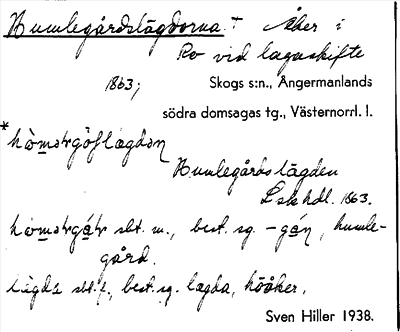 Humlegårdslägdorna + Åker i
Ro vid lagaskifte
1863; Skogs s:n., Ångermanlands
södra domsagas tg., Västernorrl. l.
*
Humlegårdslägden
Lskhdl. 1863.
sbt. m., best. sg. -gán, humle-
gård.
lägda sbt. f., best. sg. lægda,
Sven Hiller 1938.